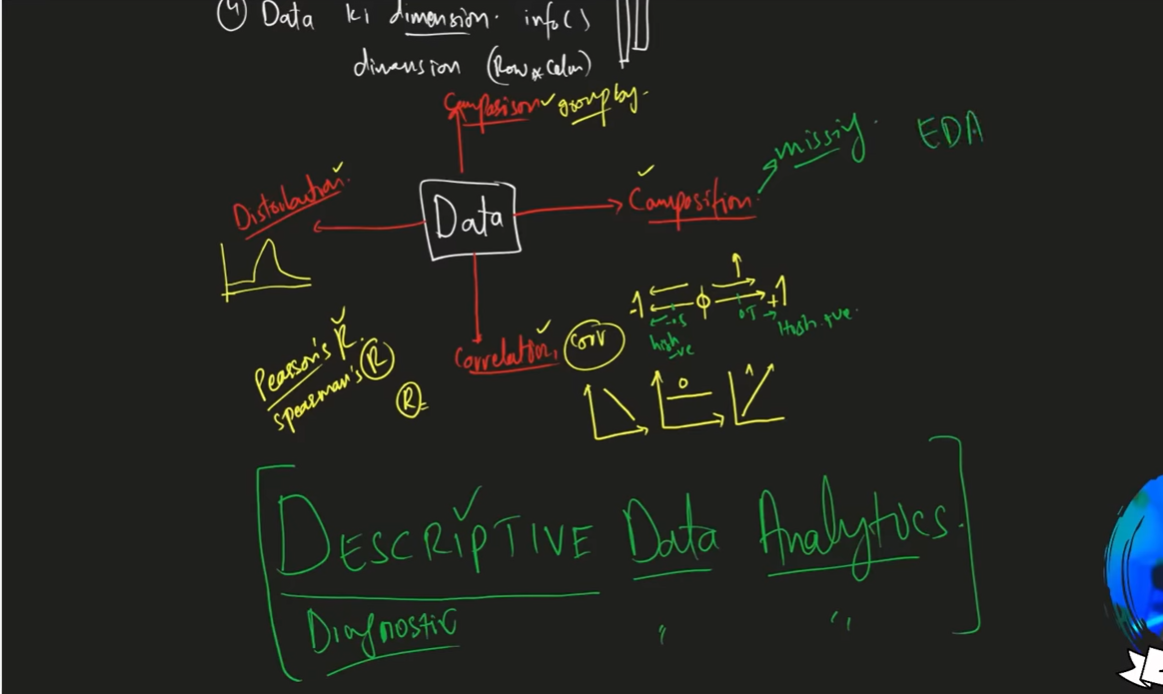 4 Data ki dimension. info()
dimension (Row * Colm)
Comparison groupby.
missing. EDA
Distribution.
Data
Composition.
-1 0 +1
-0.5 0.7 High +ve.
high -ve
Correlation, corr
Pearson's R.
Spearman's R
R =
0
[DESCRIPTIVE Data Analytics.
Diagnostic " "]